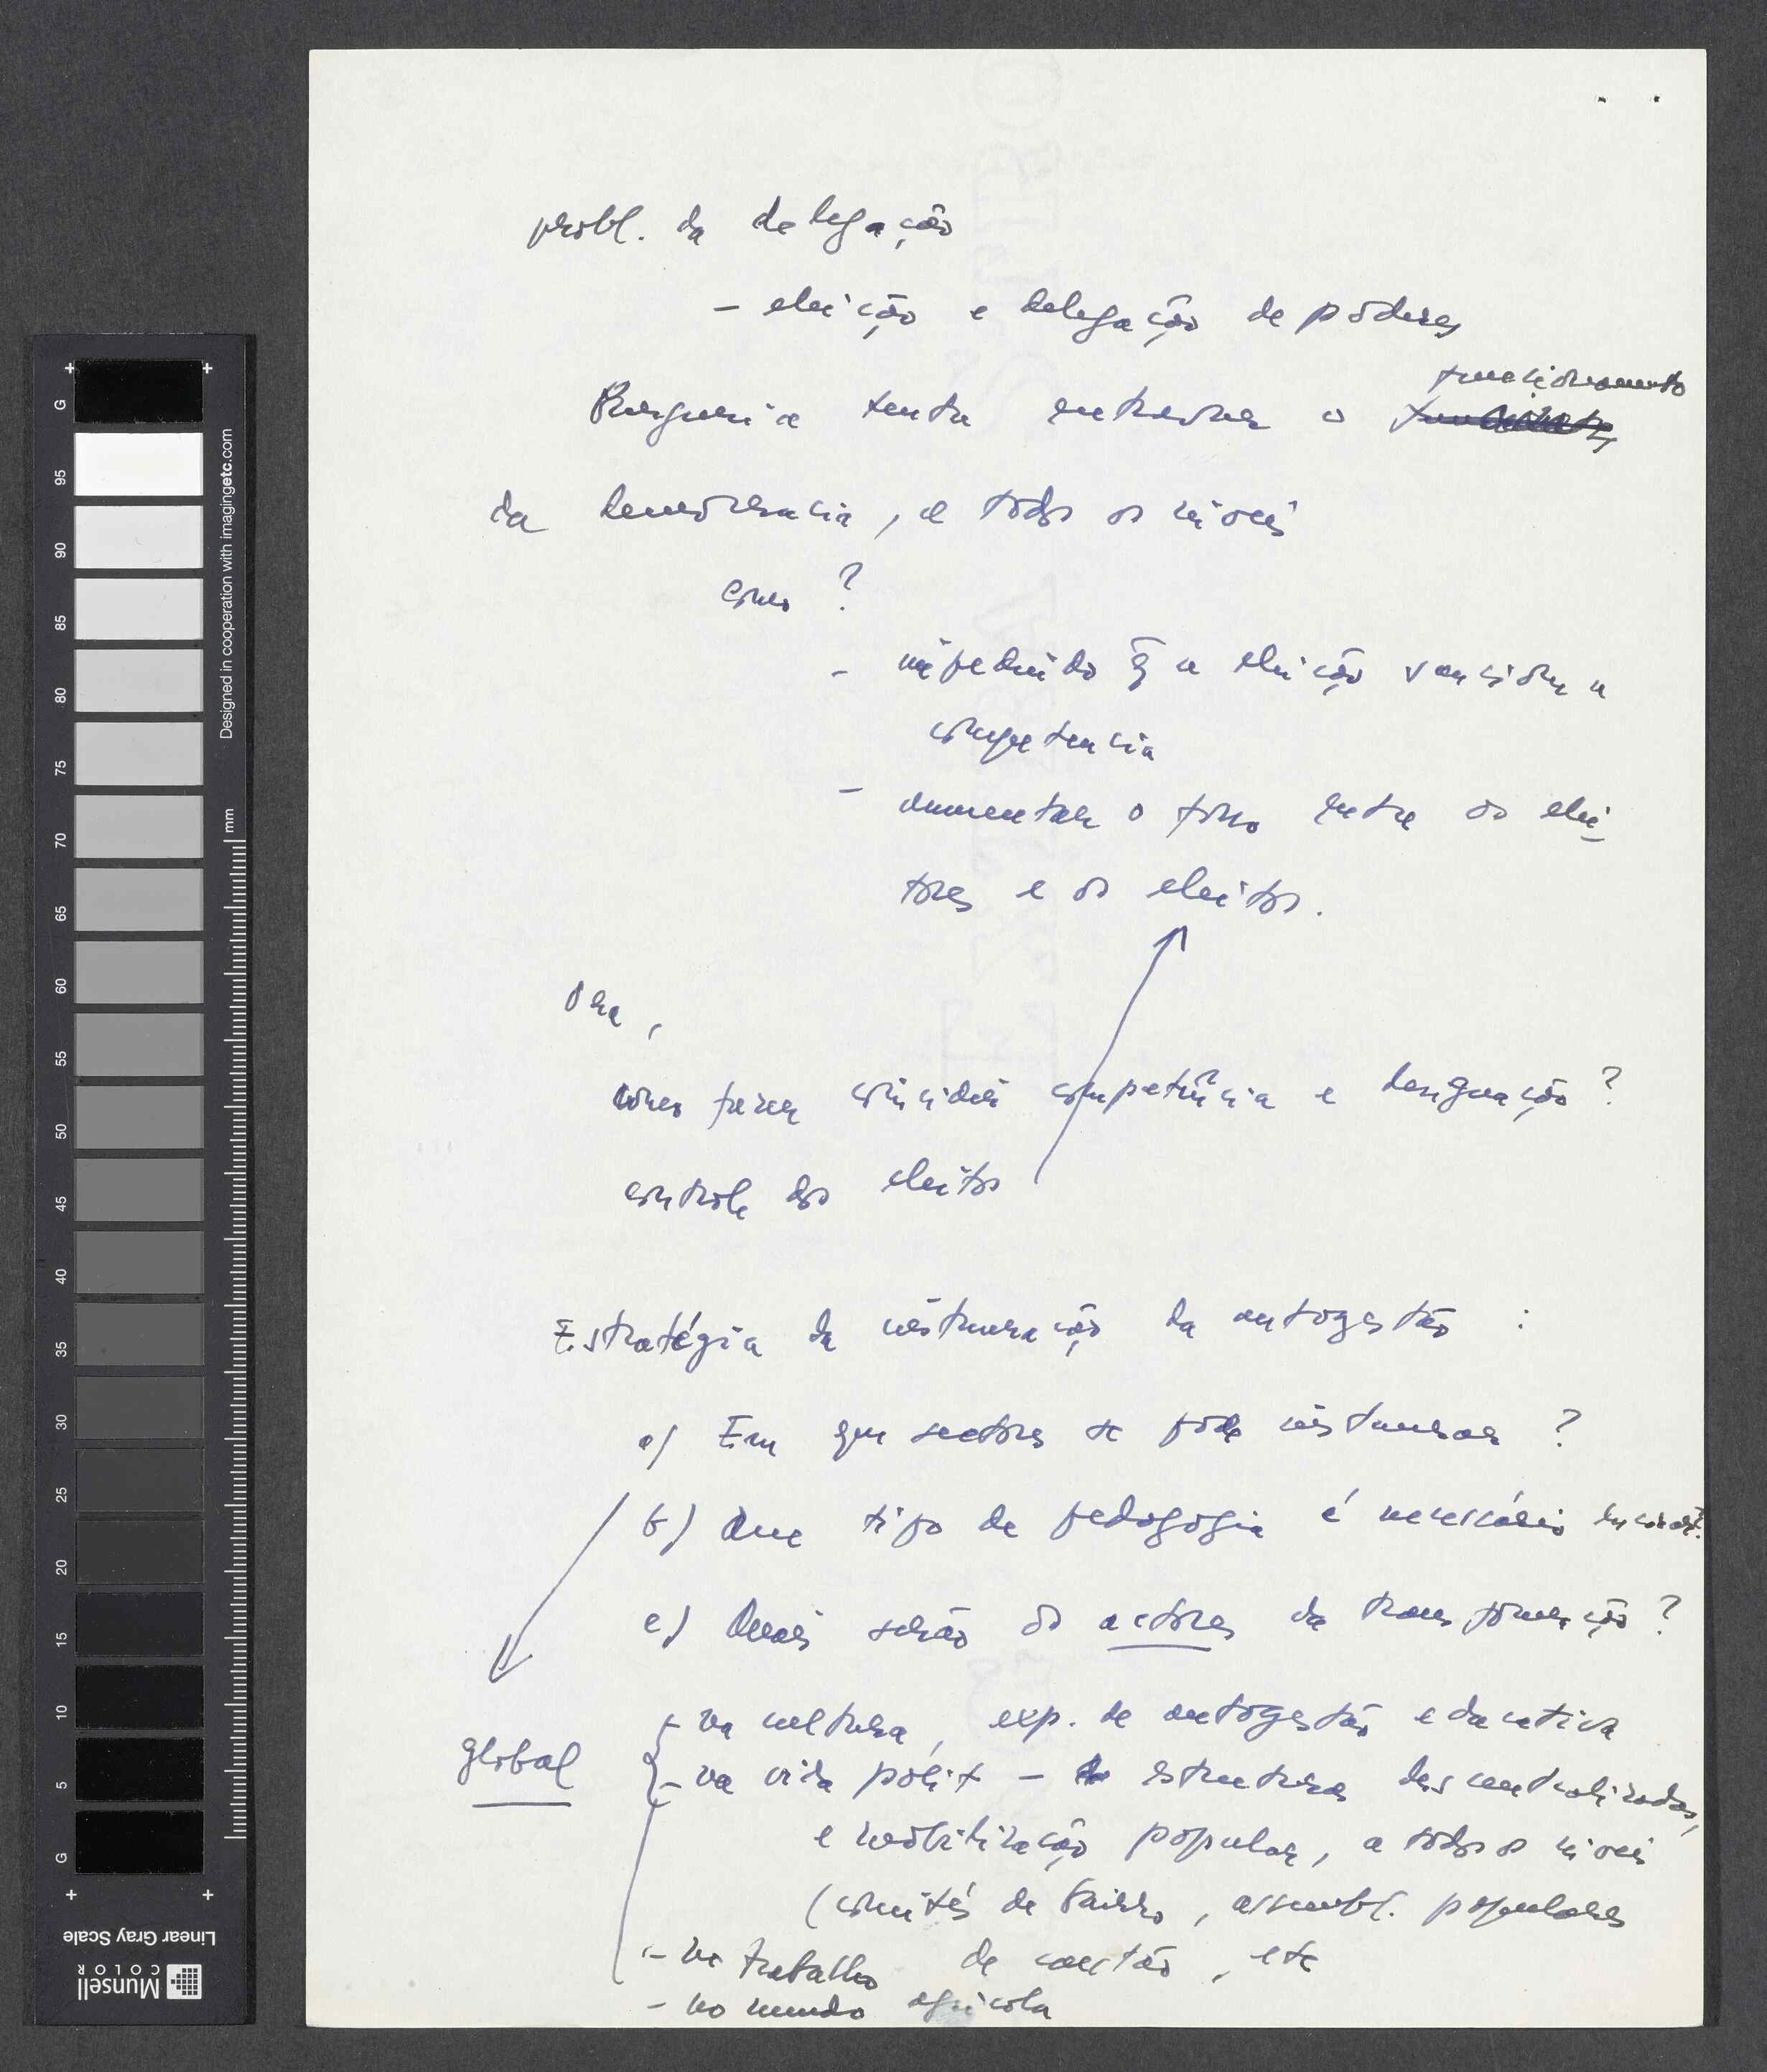 probl. da delegação
- eleição e delegação de podêres
funcionamento
Burguesia tenta entravar o
da democracia, a todos os níveis
como ?
- impedindo q̃ a eleição sancione a
competencia
- aumentar o fosso entre os elei-
tores e os eleitos.
Ora,
como fazer coincidir competência e designação ?
controle dos eleitos
Estratégia da instauração da autogestão :
a) Em que sectores se pode instaurar ?
b) Que tipo de pedagogia é necessário
c) Quais serão os actores da transformação ?
global
- na cultura, exp. de autogestão educativa
- na vida polit - estruturas descentralizadas,
e mobilização popular, a todos os níveis
(comités de bairro, assembl. populares
de cantão, etc
- no trabalho
- no mundo agricola
G 95 90 85 80 75 70 65 60 55 50 45 40 35 30 25 20 15 10 5 G
mm
Designed in cooperation with imagingetc.com
Munsell
COLOR
Linear Gray Scale